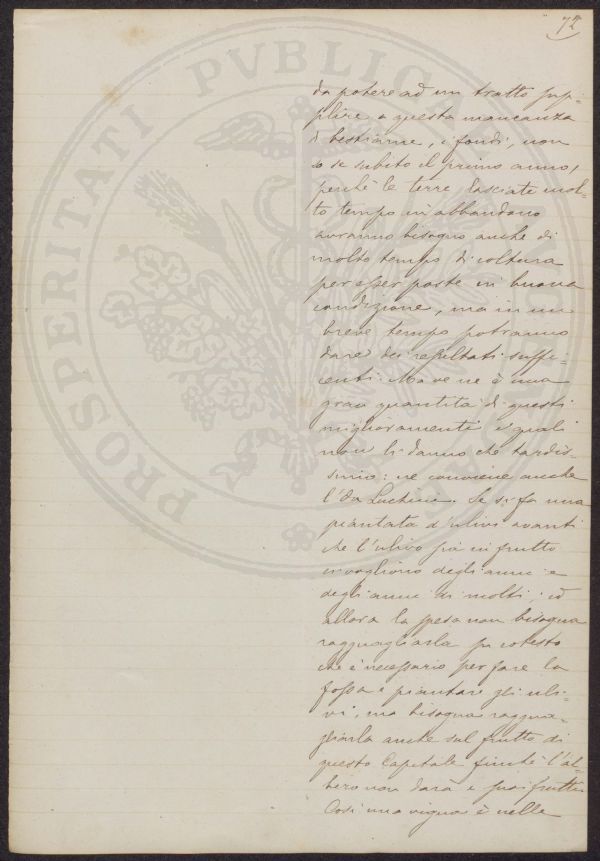 72
da potere ad un tratto sup-
plire a questa mancanza
di bestiame, i fondi, non
so se subito il primo anno,
perchè le terre lasciate mol-
to tempo in abbandono
avranno bisogno anche di
molto tempo di coltura
per esser poste in buona
condizione, ma in un
breve tempo potranno
dare dei resultati suffi-
centi. Ma ve ne è una
gran quantità di questi
miglioramenti i quali
non li danno che tardis-
simo: ne conviene anche
l'On Luchini. Se si fa una
piantata d'ulivi avanti
che l'ulivo sia in frutto
ci vogliono degli anni e
degli anni di molti: ed
allora la spesa non bisogna
ragguagliarla su cotesto
che è necessario per fare la
fossa e piantare gli uli-
vi, ma bisogna raggua-
gliarla anche sul frutto di
questo Capitale finchè l'al-
bero non darà i suoi frutti.
Così una vigna è nelle
PROSPERITATI PVBLICAE